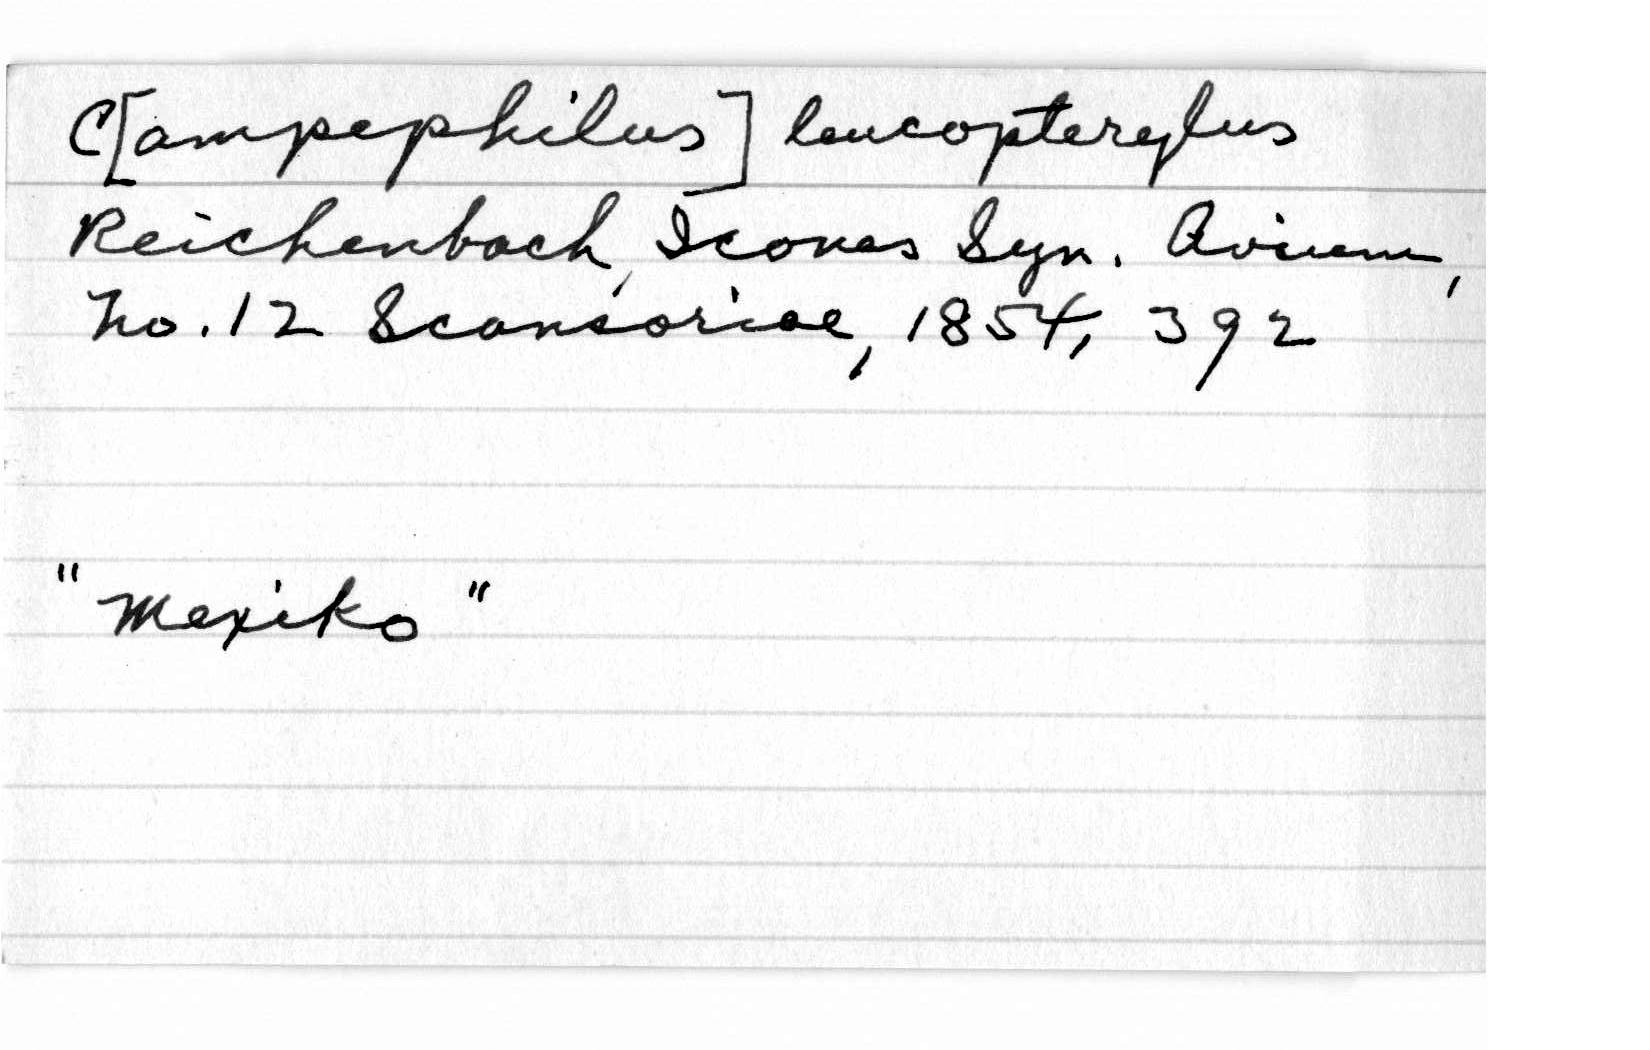 C[ampephilus] leucopterylus
Reichenbach, Icones Syn. Avium,
No. 12 Scansoriae, 1854, 392
"Mexiko"